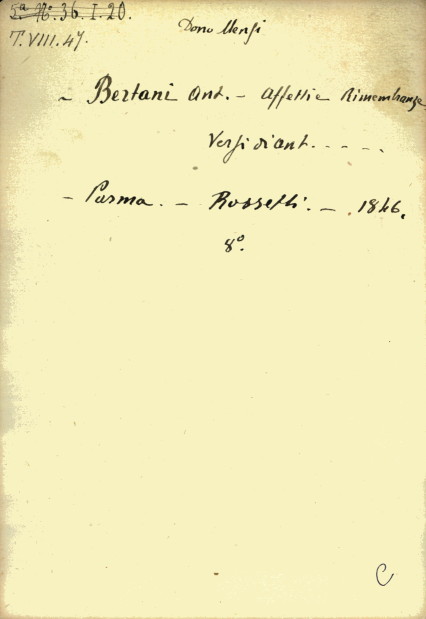 5ª Nº. 36. I. 20.
T. VIII. 47.
Dono Mensi
~ Bertani Ant. - Affetti e Rimembranze
Versi di Ant. - - - - .
- Parma. - Rossetti. - 1846.
8º.
C